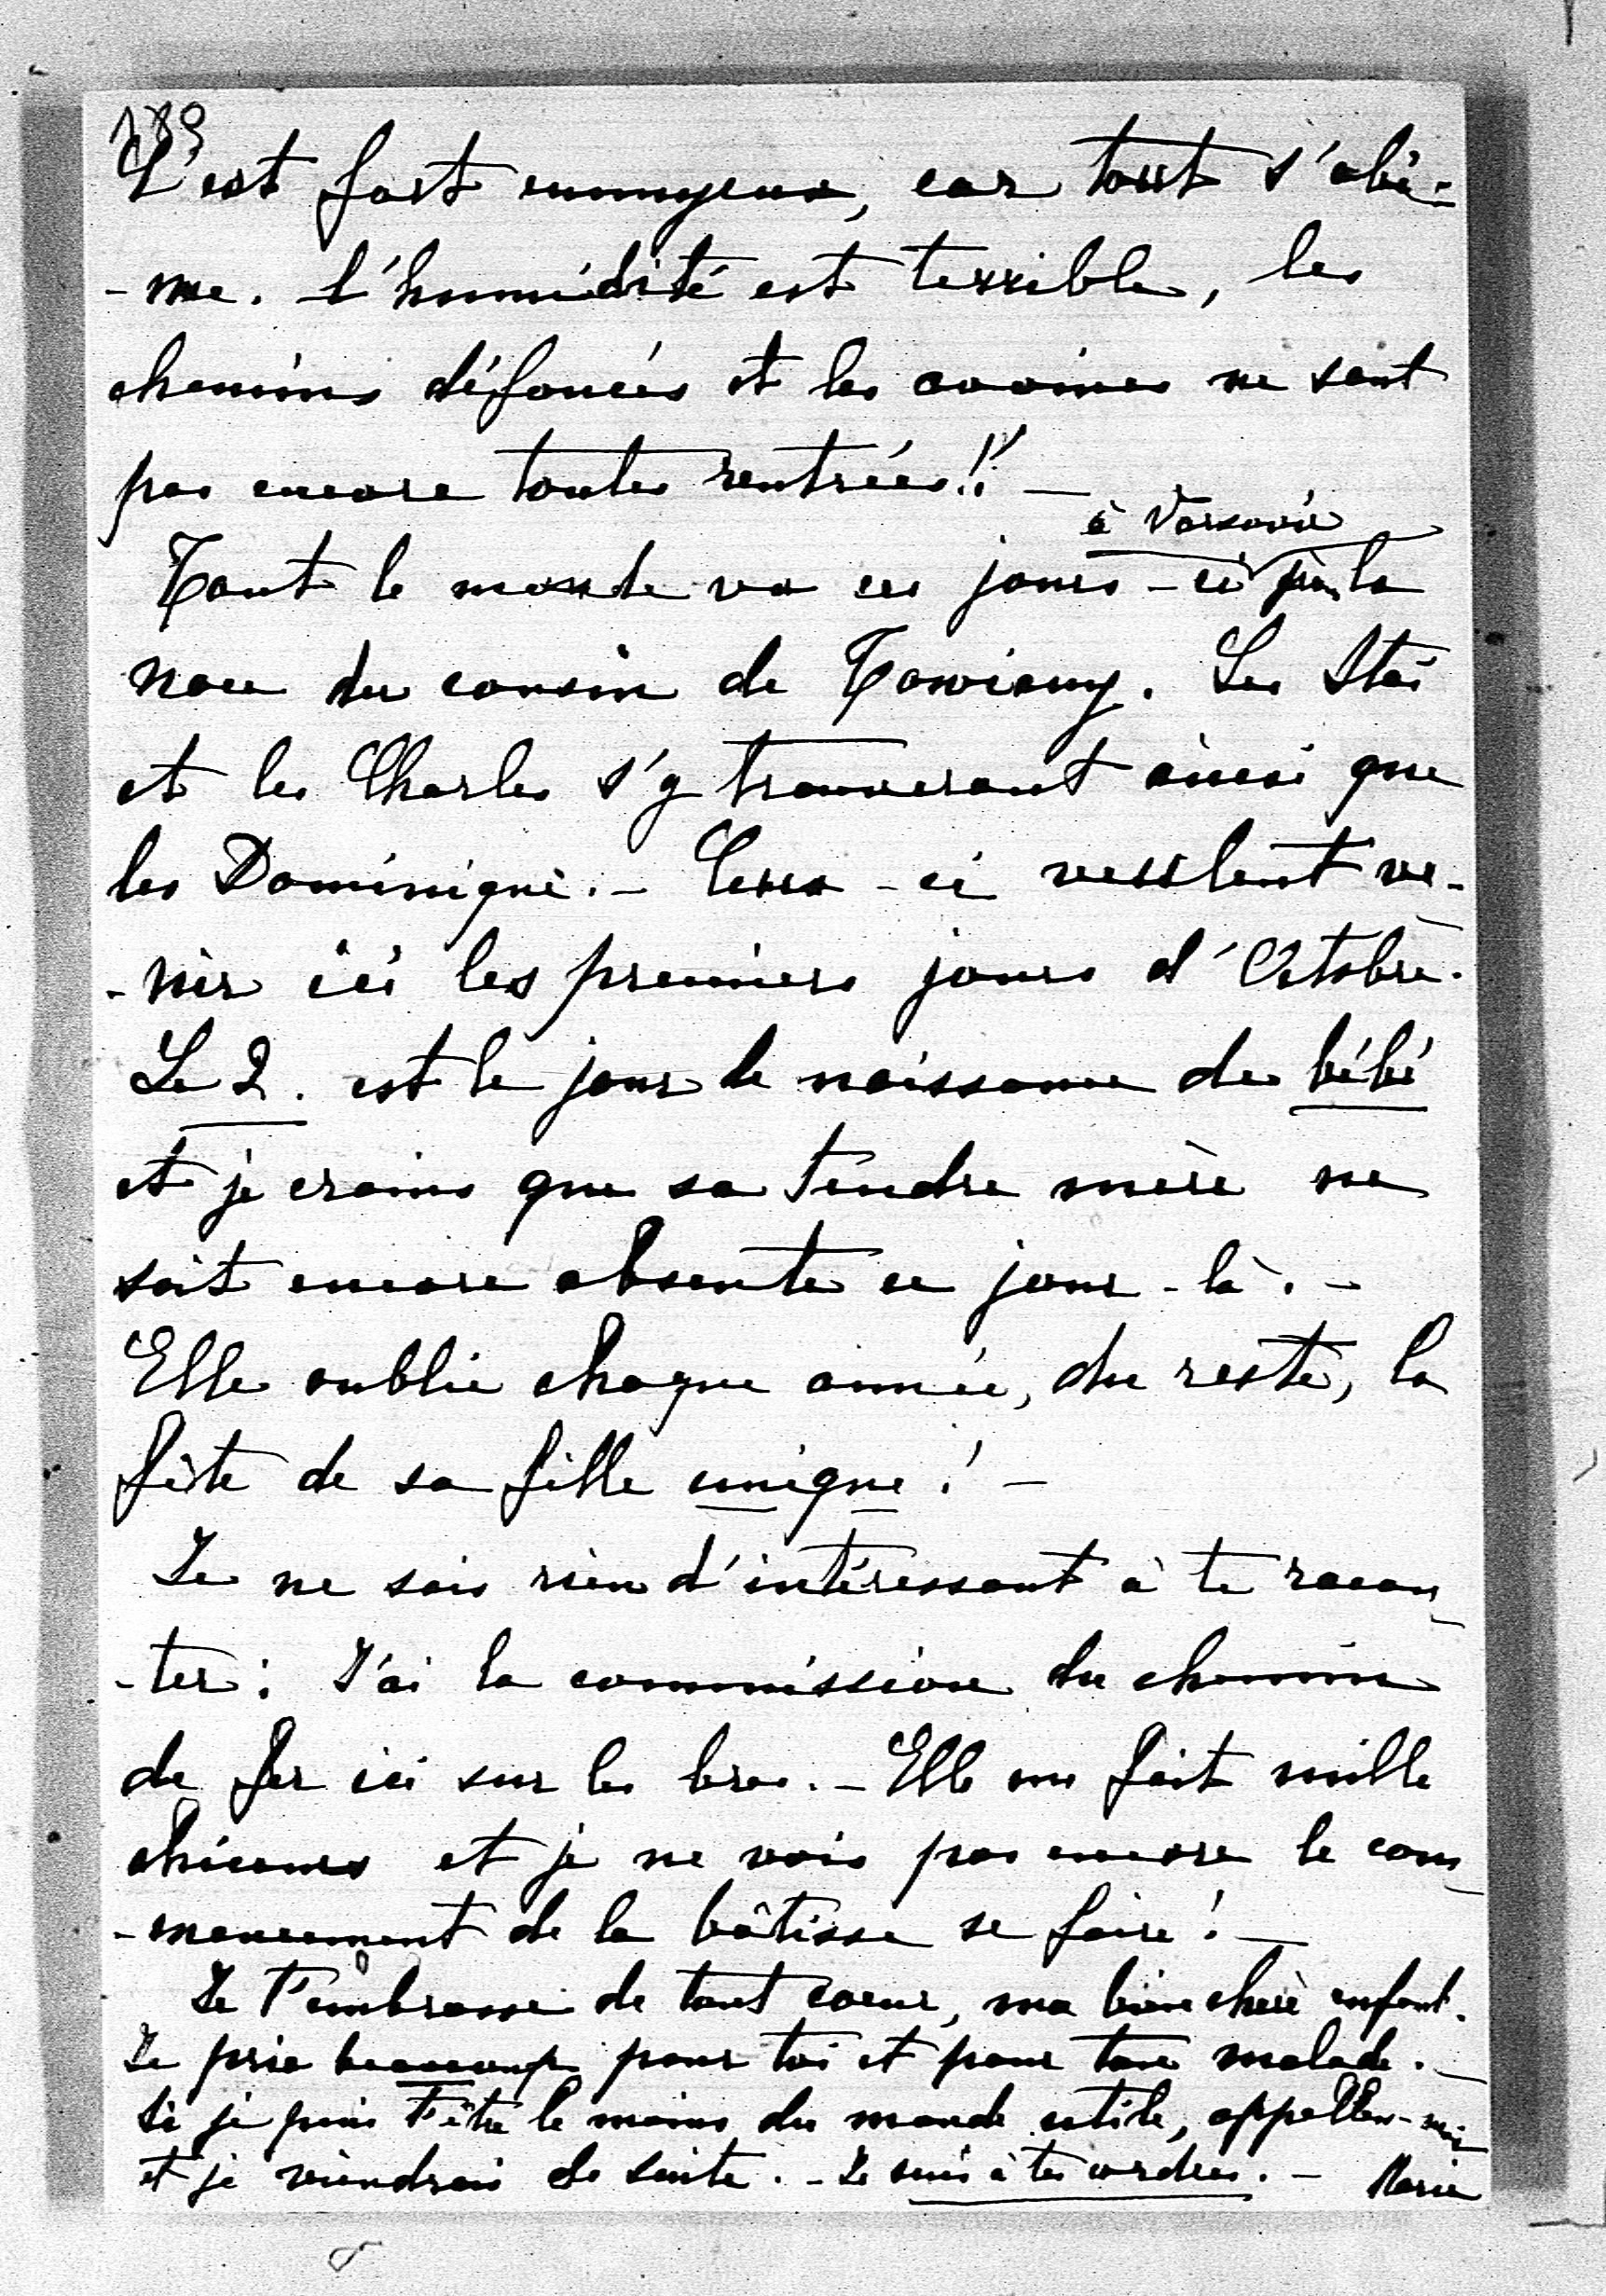 189
C'est fort ennuyeux, car tout s'abî-
-me. L'humidité est terrible, les
chemins défoncés et les avoines ne sont
pas encore toutes rentrées!! —
à Varsovie
Tout le monde va ces jours-ci pr. la
noce du cousin de Towiany. Les Staś
et les Charles s'y trouveront ainsi que
les Dominique. – Ceux-ci veulent ve-
-nir ici les premiers jours d'Octobre.
Le 2. est le jour de naissance de bébé
et je crains que sa tendre mère ne
soit encore absente ce jour-là. –
Elle oublie chaque année, du reste, la
fête de sa fille unique! –
Je ne sais rien d'intéressant à te racon-
-ter: J'ai la commission du chemin
de fer ici sur les bras. – Elle me fait mille
chicanes et je ne vois pas encore le com-
-mencement de la bâtisse se faire! —
Je t'embrasse de tout coeur, ma bien chère enfant.
Je prie beaucoup pour toi et pour ton malade. –
Si je puis t'être le moins du monde utile, appelles-moi
et je viendrai de suite. – Je suis à tes ordres. – Marie